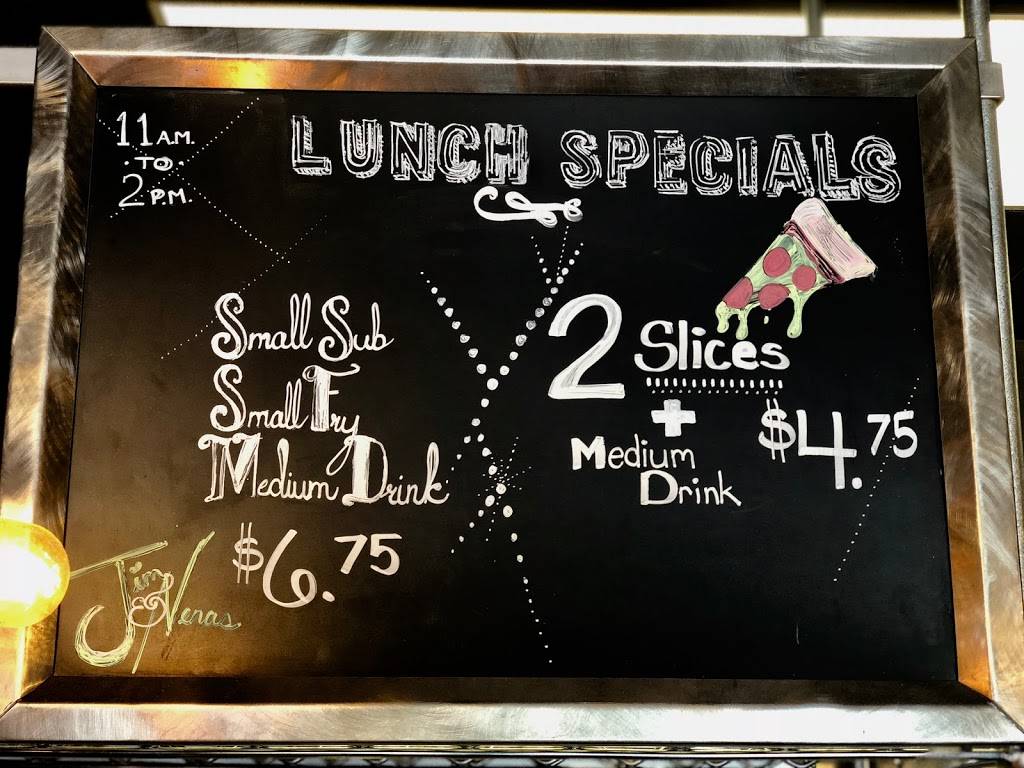 11 A.M.
· TO ·
2 P.M.
LUNCH SPECIALS
Small Sub
Small Fry
Medium Drink
$6.75
2 Slices
+
Medium
Drink
$4.75
Jim
& Venas